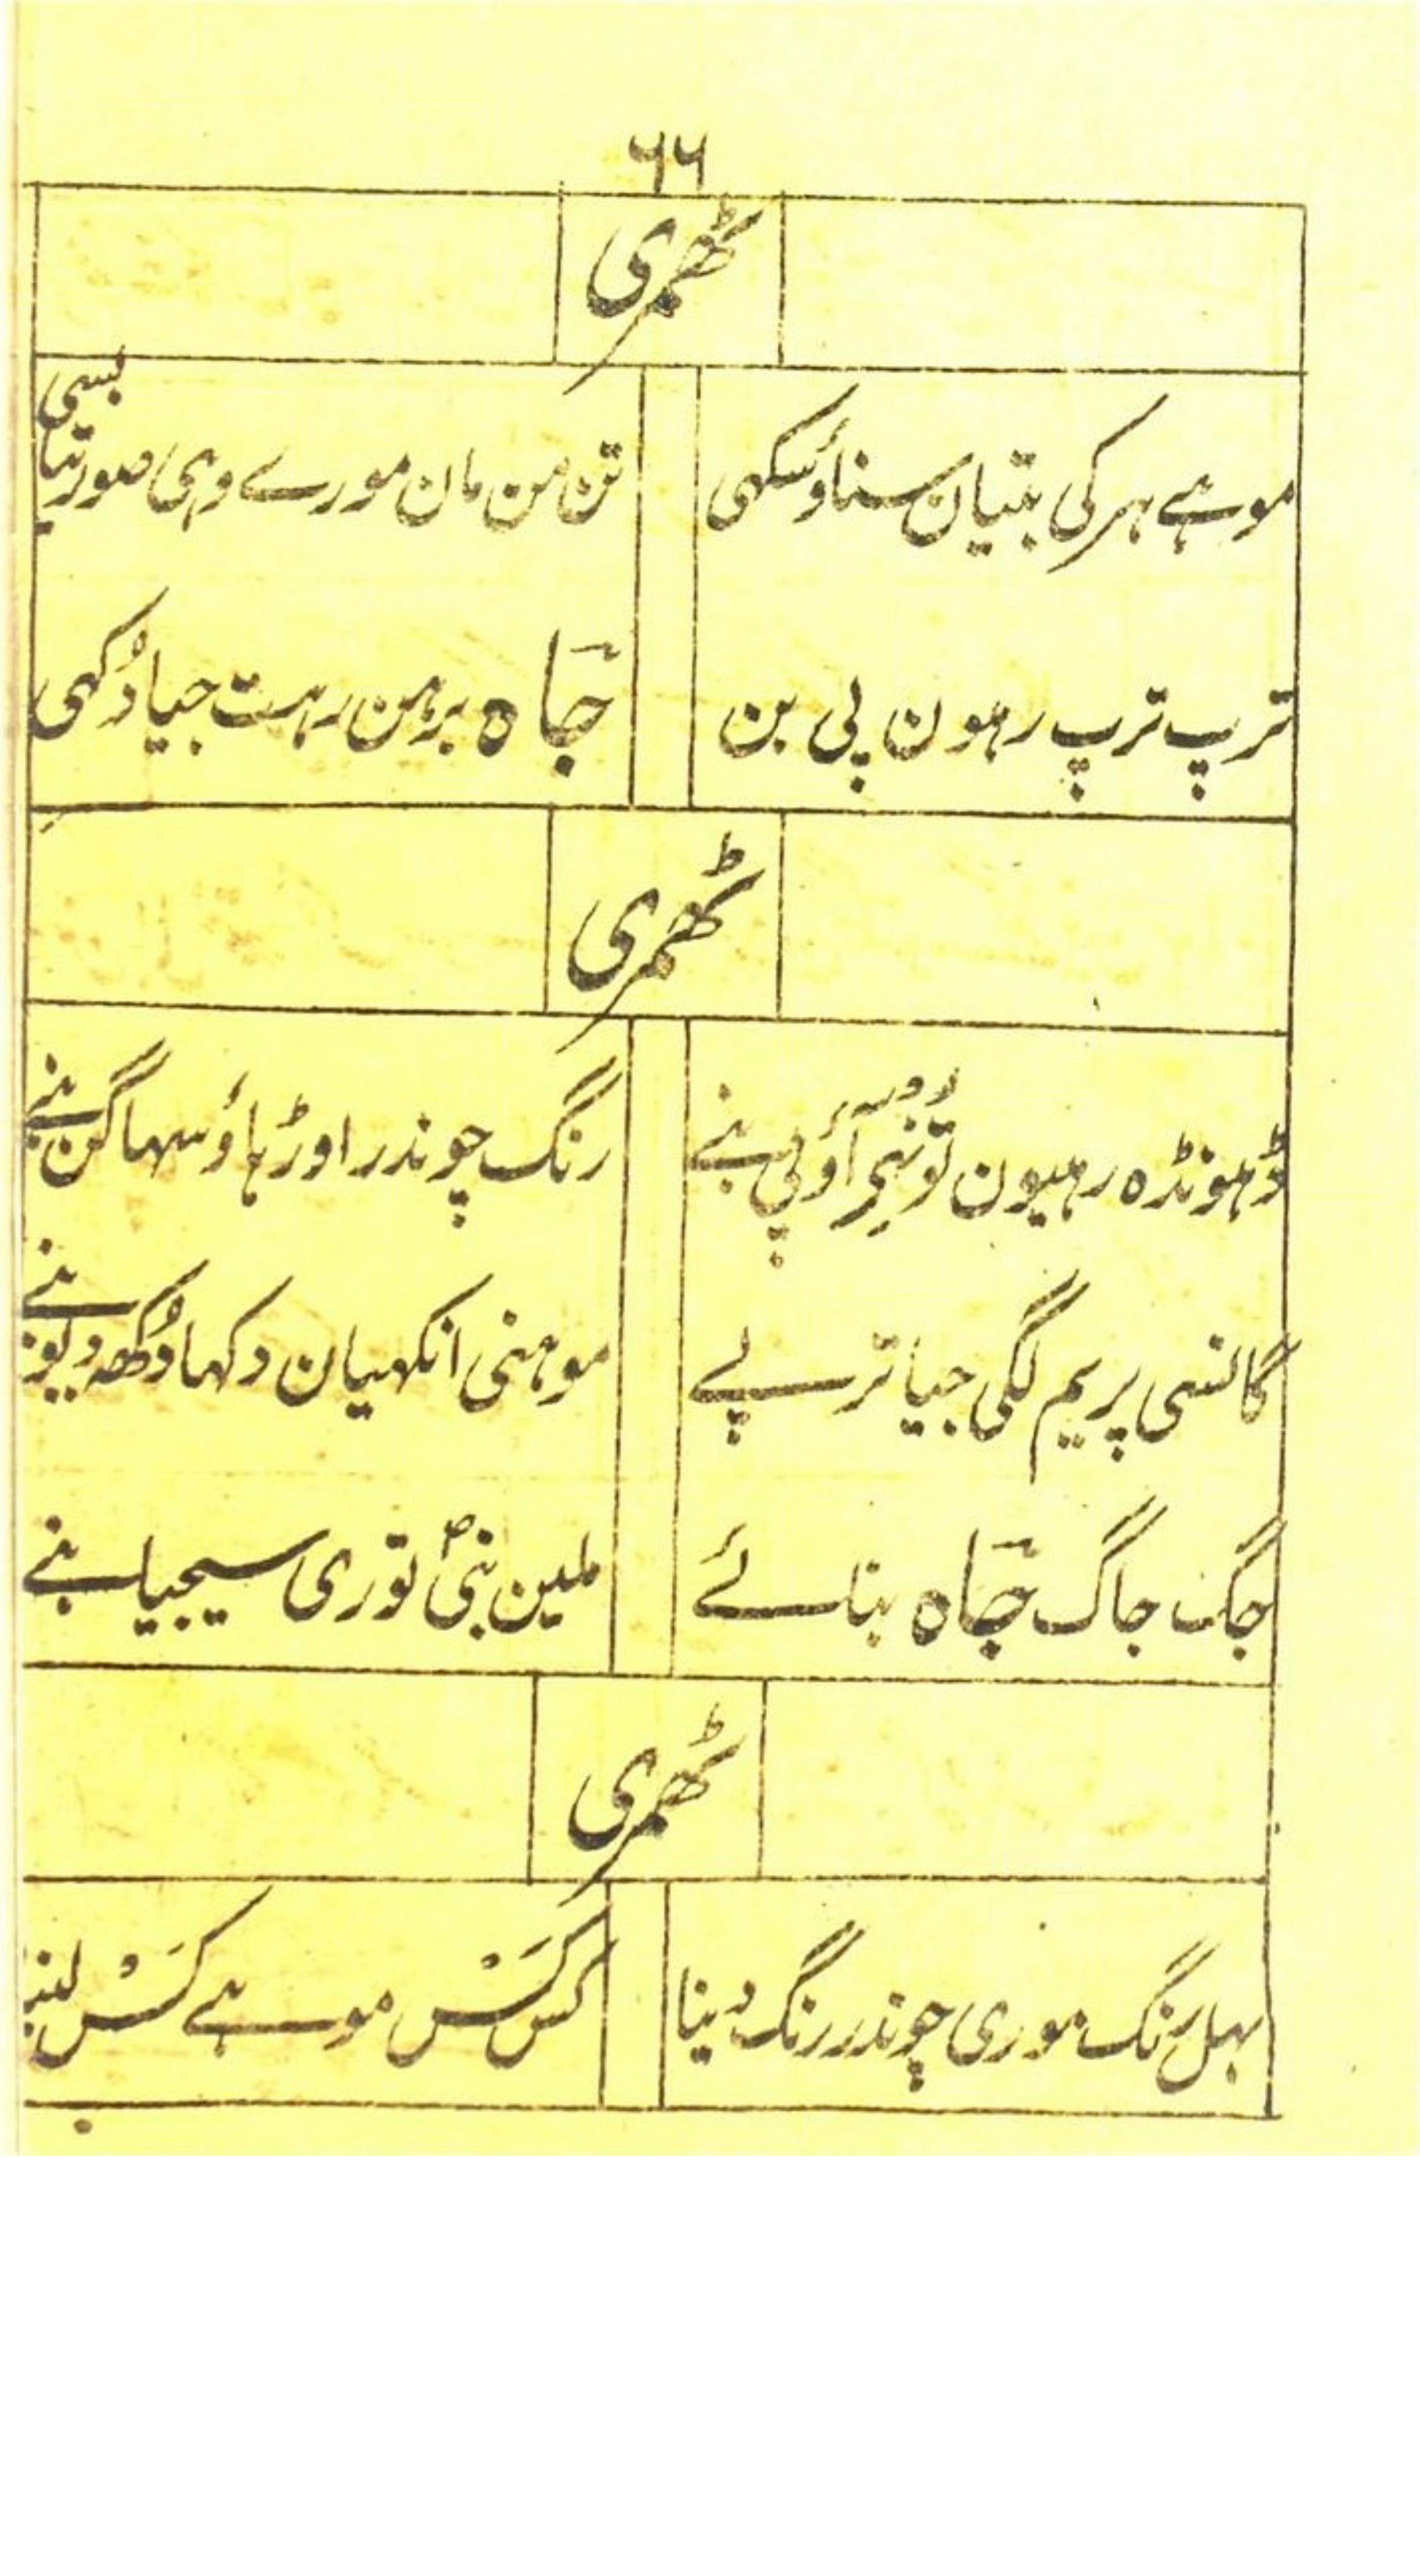 ۶۶
ٹھمری
موہے ہر کی بتیان سناؤ سکھی
تن من مان مورے وہی صورتیا بسی
ترپ ترپ رہون پی بن
جَاہ برہن رہت جیا دُکھی
ٹھمری
ڈھونڈہ رہیون آؤ پی بنے
رنگ چوندر اوڑہاؤ سہاگن بنے
گانسی پریم لگی جیا ترپے
موہنی انکھیان دکھا دُکھہ دیو بنے
جگ جاگ جَاہ بنائے
ملین نبیؐ توری سیجیا بنے
ٹھمری
بہل رنگ موری چوندر رنگ دینا
کس کَسْ موہے کَسْ